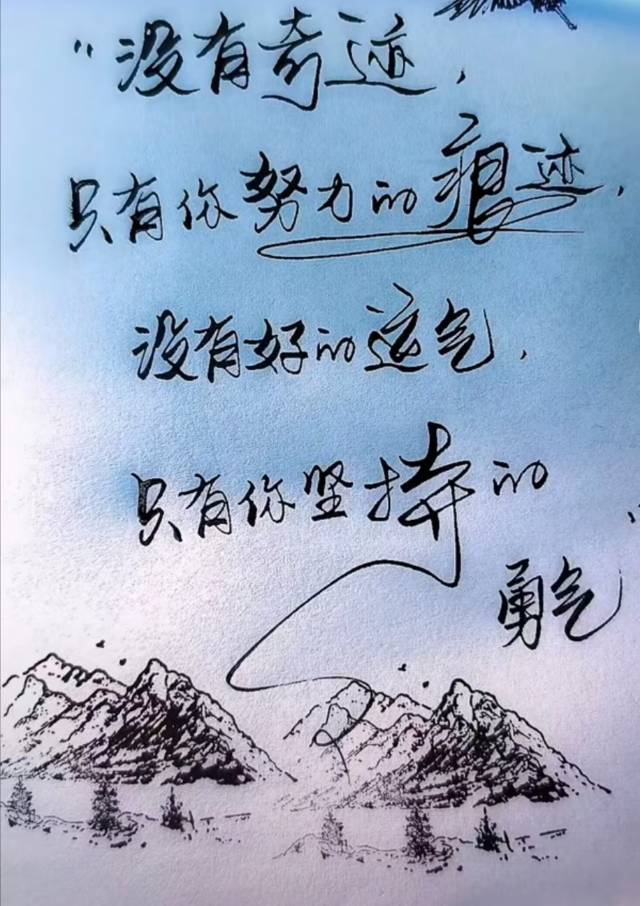 "没有奇迹，
只有你努力的痕迹，
没有好的运气，
只有你坚持的
勇气"